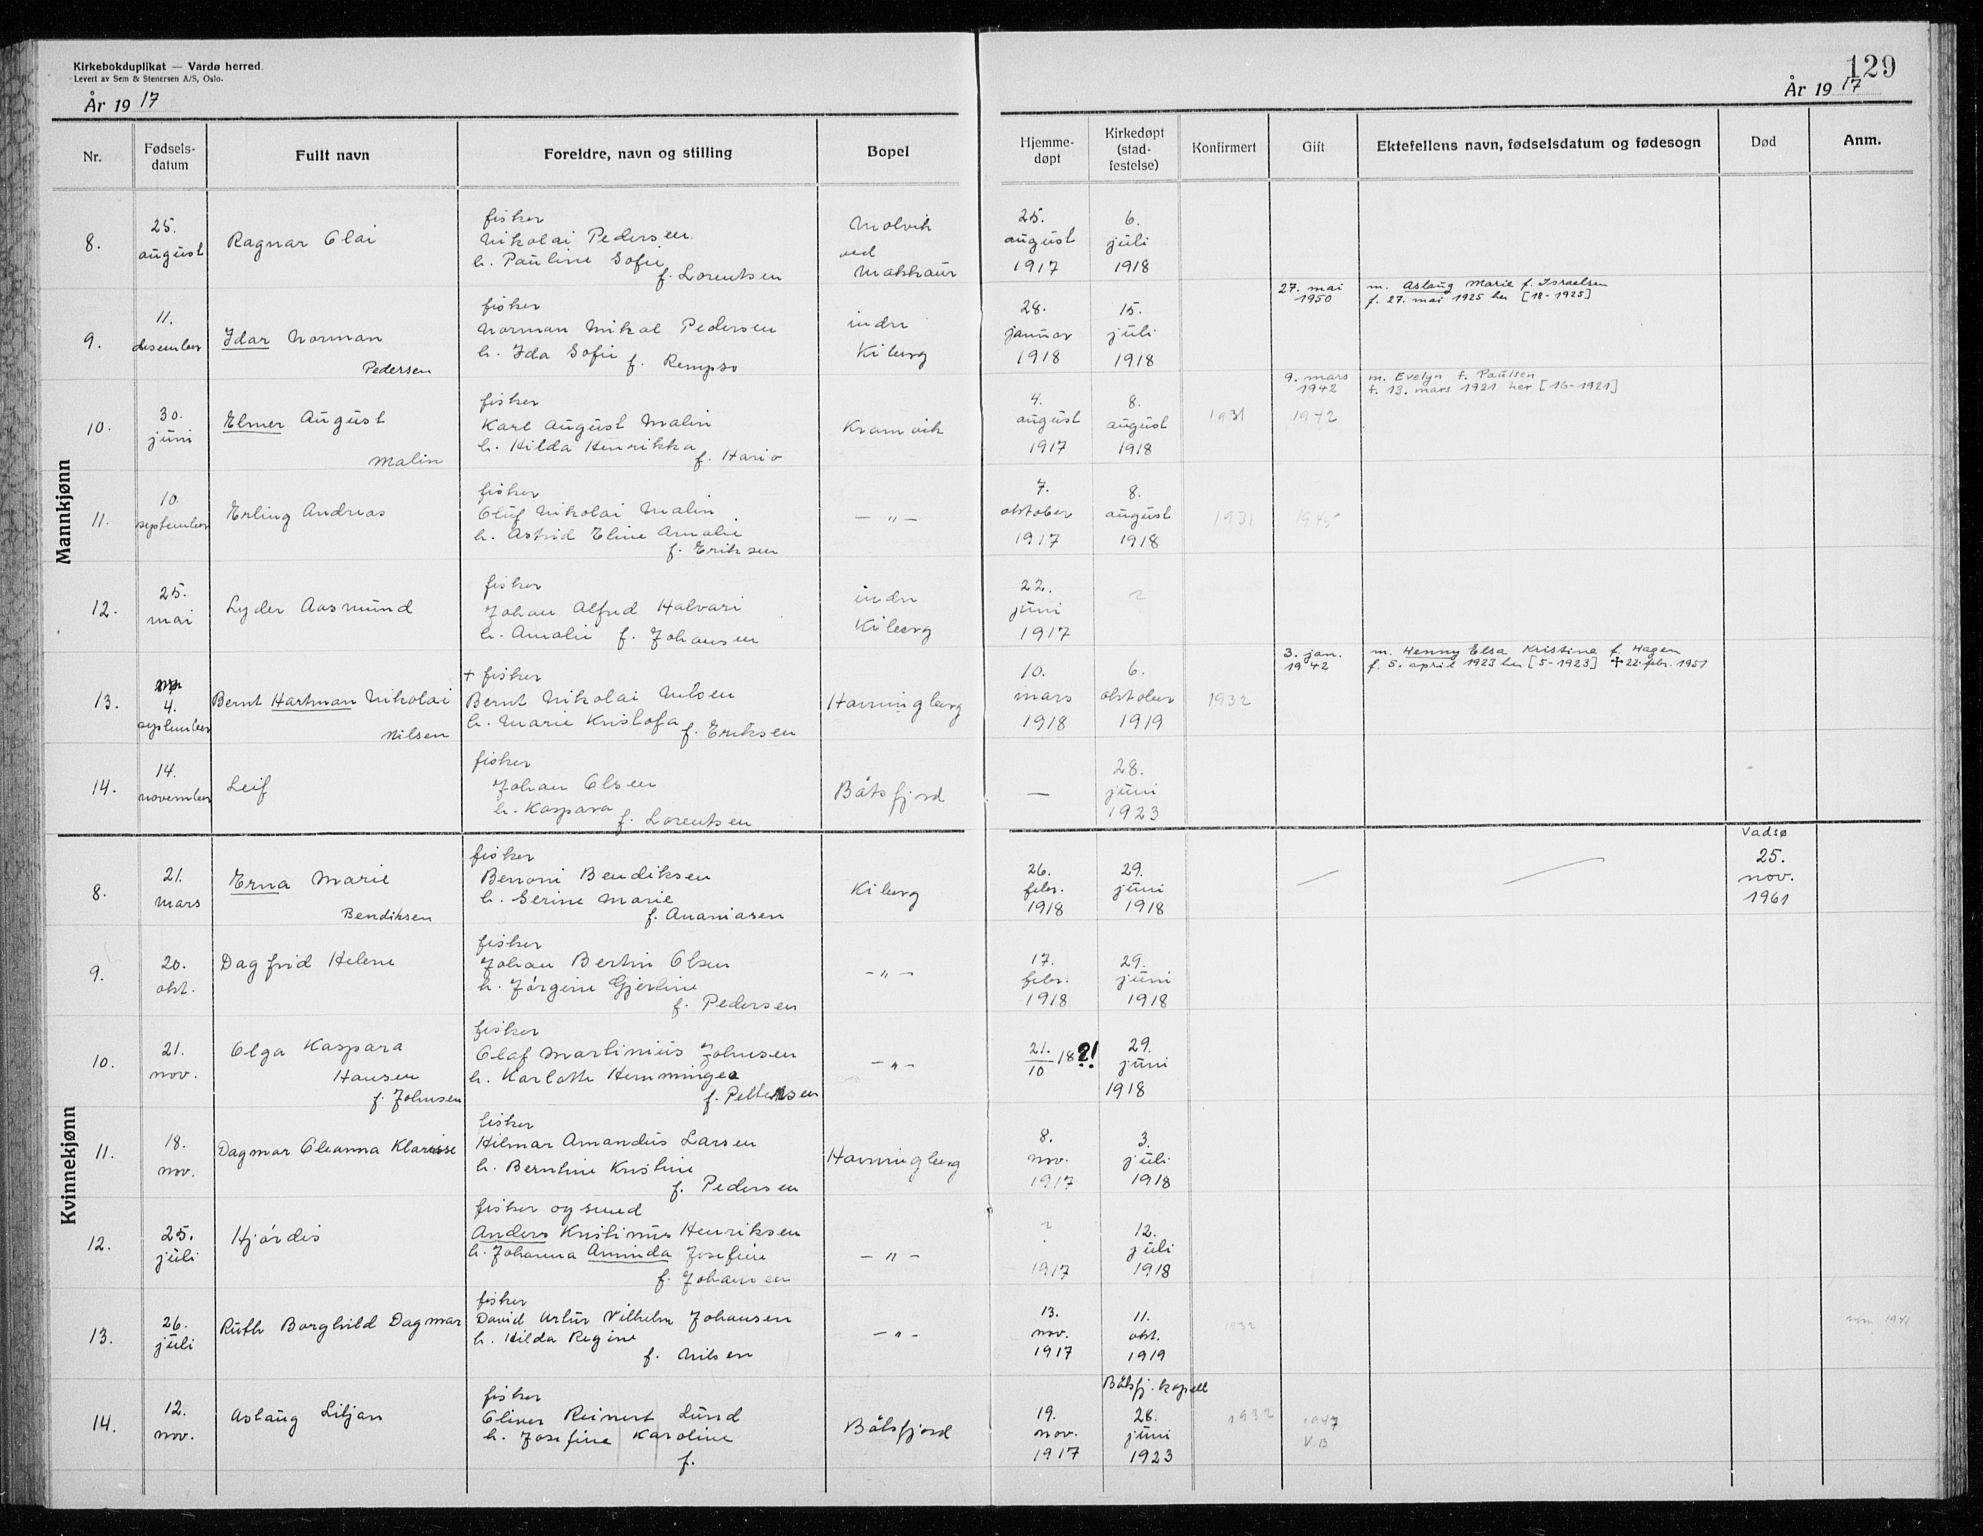 Kirkebokduplikat — Vardø herred.
Levert av Sem & Stenersen A/S, Oslo.
År 1917
129
År 1917
Nr. Fødselsdatum Fullt navn Foreldre, navn og stilling Bopel Hjemmedøpt Kirkedøpt (stadfestelse) Konfirmert Gift Ektefellens navn, fødselsdatum og fødesogn Død Anm.
Mannkjønn
8. 25. august Ragnar Olai
fisker
Nikolai Pedersen
h. Pauline Sofie
f. Lorentsen
Molvik
ved
Makkaur
25. august 1917
6. juli 1918
9. 11. desember Idar Norman
Pedersen
fisker
Norman Nikol Pedersen
h. Ida Sofie f. Rempso
indre
Kiberg
28. januar 1918
15. juli 1918
27. mai 1950
m. Aslaug Marie f. Israelsen
f. 27. mai 1925 her [18-1925]
10. 30. juni Elmer August
Malin
fisker
Karl August Malin
h. Hilda Henrikka
f. Hario
Kramvik
4. august 1917
8. august 1918
1931
9. mars 1942
1942
m. Evelyn f. Paulsen
f. 13. mars 1921 her [16-1921]
11. 10. september Erling Andreas
fisker
Oluf Nikolai Malin
h. Astrid Eline Amalie
f. Eriksen
— „ —
7. oktober 1917
8. august 1918
1931
1945
12. 25. mai Lyder Aasmund
fisker
Johan Alfred Halvari
h. Amalie f. Johansen
indre
Kiberg
22. juni 1917
?
13. 4. september Bernt Hartman Nikolai
Nilsen
+ fisker
Bernt Nikolai Nilsen
h. Marie Kristofa
f. Eriksen
Havningberg
10. mars 1918
6. oktober 1919
1932
3. jan. 1942
m. Henny Elsa Kristine f. Hagen
f. 5. april 1923 her [5-1923] ✝ 22. febr. 1951
14. 14. november Leif
fisker
Johan Olsen
h. Kaspara
f. Lorentsen
Båtsfjord
—
28. juni 1923
Kvinnekjønn
8. 21. mars Erna Marie
Bendiksen
fisker
Benoni Bendiksen
h. Serine Marie
f. Ananiasen
Kiberg
26. febr. 1918
29. juni 1918
—
—
Vadsø
25. nov. 1961
9. 20. okt. Dagfrid Helene
fisker
Johan Bertin Olsen
h. Jørgine Gjertine
f. Pedersen
— „ —
17. febr. 1918
29. juni 1918
10. 21. nov. Olga Kaspara
Hansen
f. Johnsen
fisker
Olaf Martinius Johnsen
h. Karlotte
f. Pettersen
— „ —
21./10 18 ?!
29. juni 1918
11. 18. nov. Dagmar Oleanna Klarise
fisker
Hilmar Amandus Larsen
h. Berntine Kristine
f. Pedersen
Havningberg
8. nov. 1917
3. juli 1918
12. 25. juli Hjørdis
fisker og smed
Anders Kristinus Henriksen
h. Johanna Aminda Josefine
f. Johansen
— „ —
? 1917
12. juli 1918
13. 26. juli Ruth Borghild Dagmar
fisker
David Artur Vilhelm Johansen
h. Hilda Regine
f. Nilsen
— „ —
13. nov. 1917
11. okt. 1919
1932
1941
14. 12. nov. Aslaug Liljan
fisker
Oliver Reinert Lund
h. Josefine Karoline
f.
Båtsfjord
19. nov. 1917
Båtsfj. kapell
28. juni 1923
1932
1947
V.B